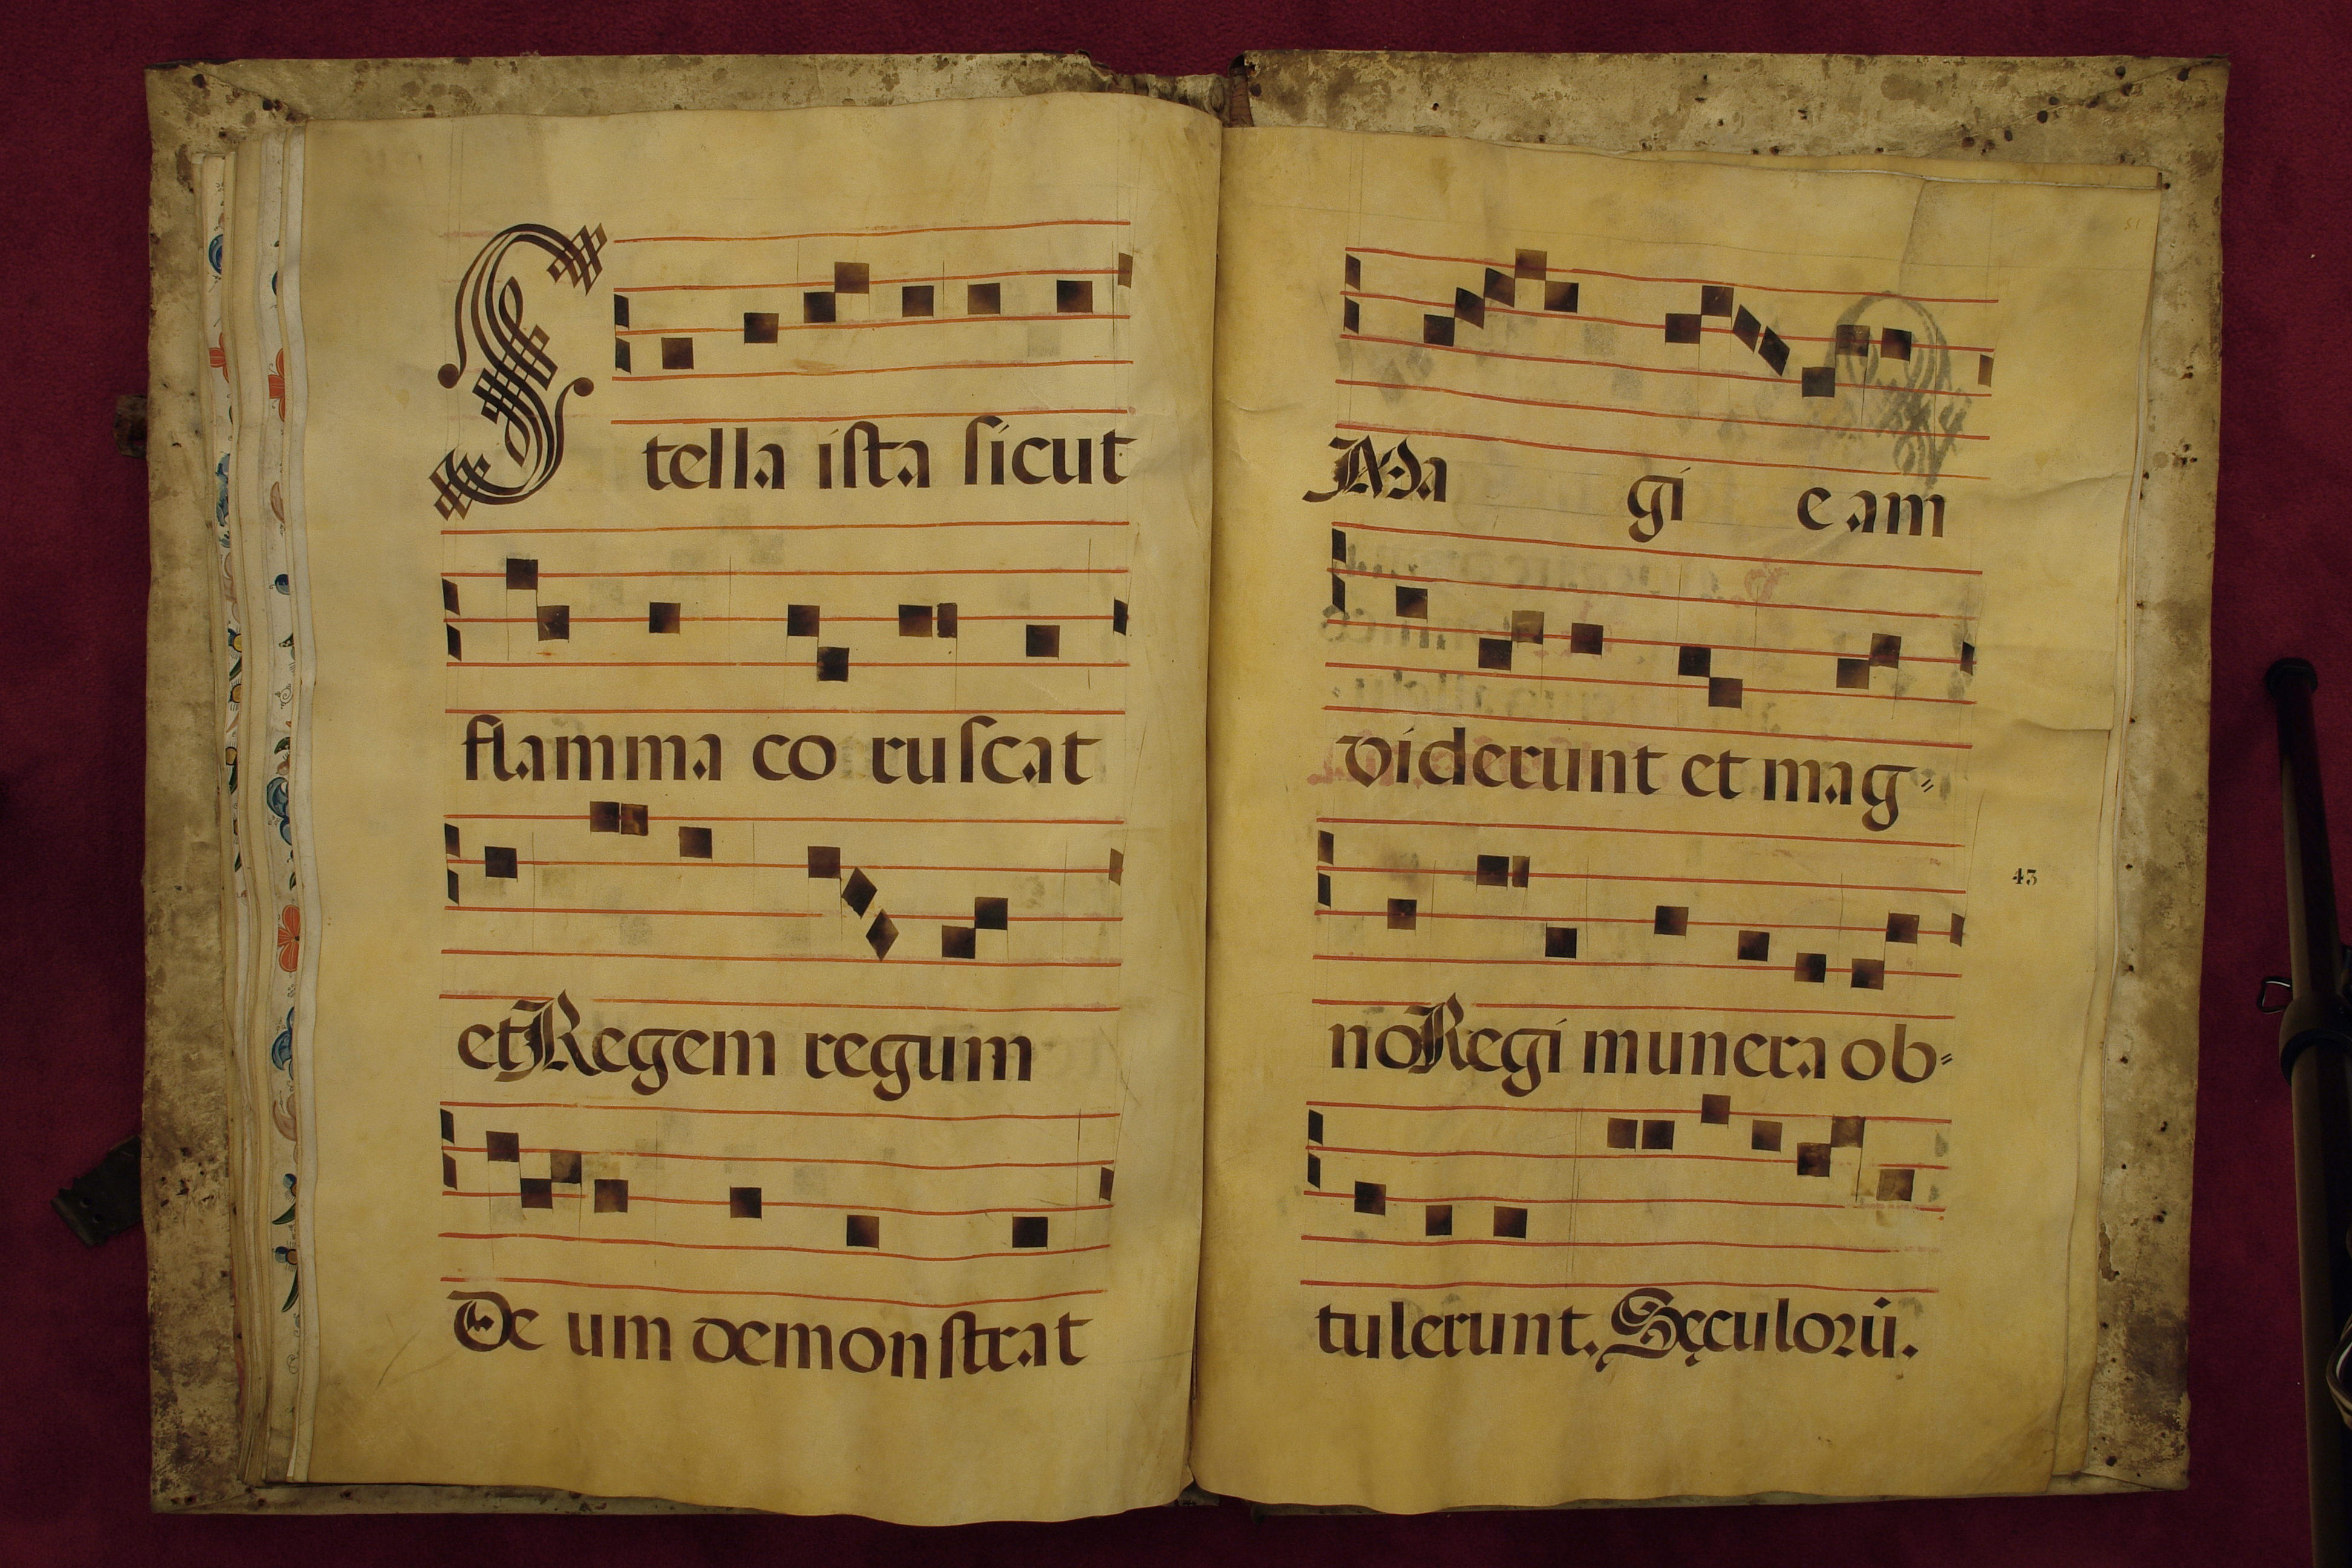 Stella ista sicut
flamma co ruscat
et Regem regum
De um demonstrat
51
Ma gi eam
viderunt et mag=
no Regi munera ob=
43
tulerunt. Sęculorū.